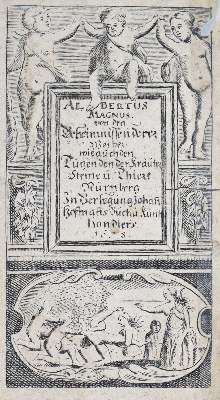 ALBERTUS
MAGNUS.
von den
Geheimnissen derer
Weiber
wie auch den
Tugenden der Kräuter
Steine u Thiere
Nürnberg
In Verlegung Johan
Hofmans Buch u Kunst
handlers